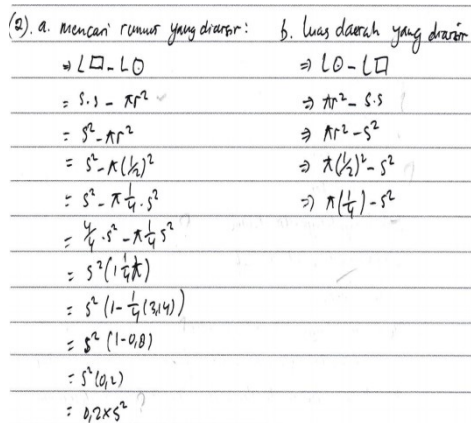 (2). a. mencari rumus yang diarsir :
⇒ L□ - L○
= s.s - πr²
= s² - πr²
= s² - π(½)²
= s² - π ¼ . s²
= 4/4 . s² - π ¼ s²
= s² (1 ¼ π)
= s² (1 - ¼ (3,14))
= s² (1 - 0,8)
= s² (0,2)
= 0,2 x s²
b. luas daerah yang diarsir
⇒ L○ - L□
⇒ πr² - s.s
⇒ πr² - s²
⇒ π(½)² - s²
⇒ π(¼) - s²